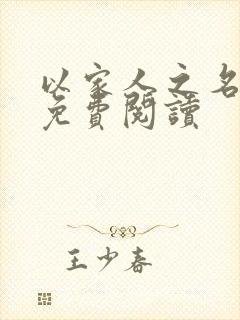 以家人之名
免費閱讀
王少春